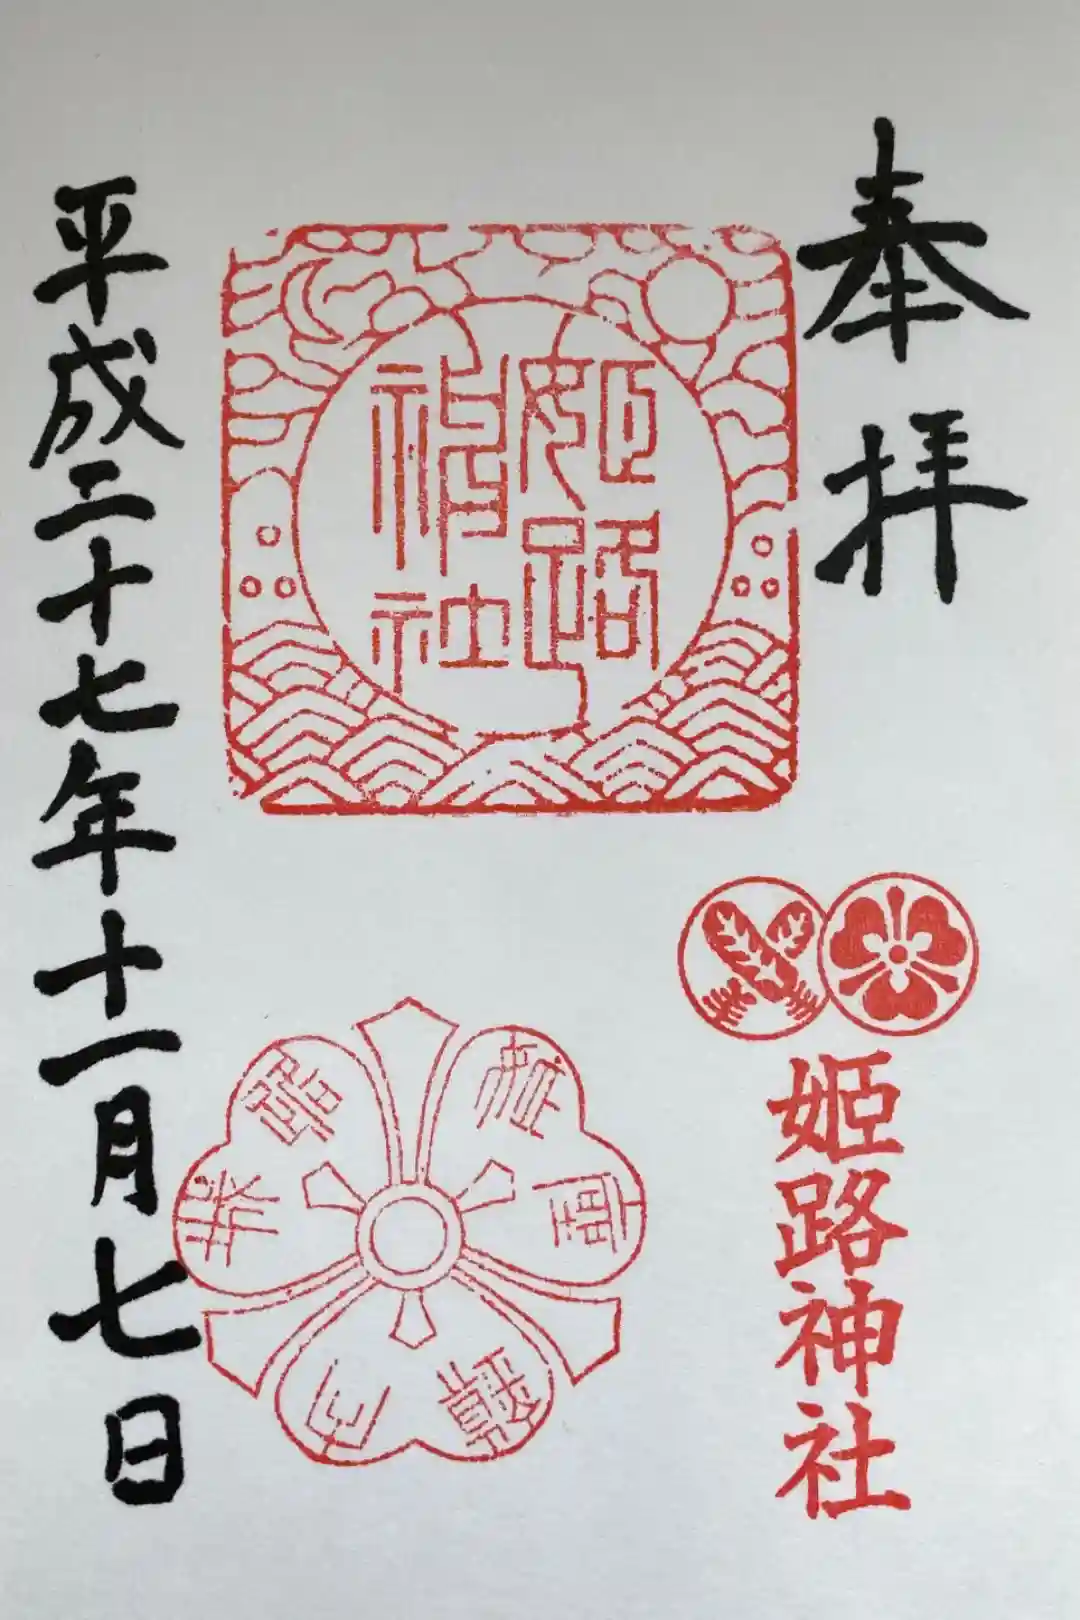 奉拝
姫路
神社
姫路神社
平成二十七年十一月七日